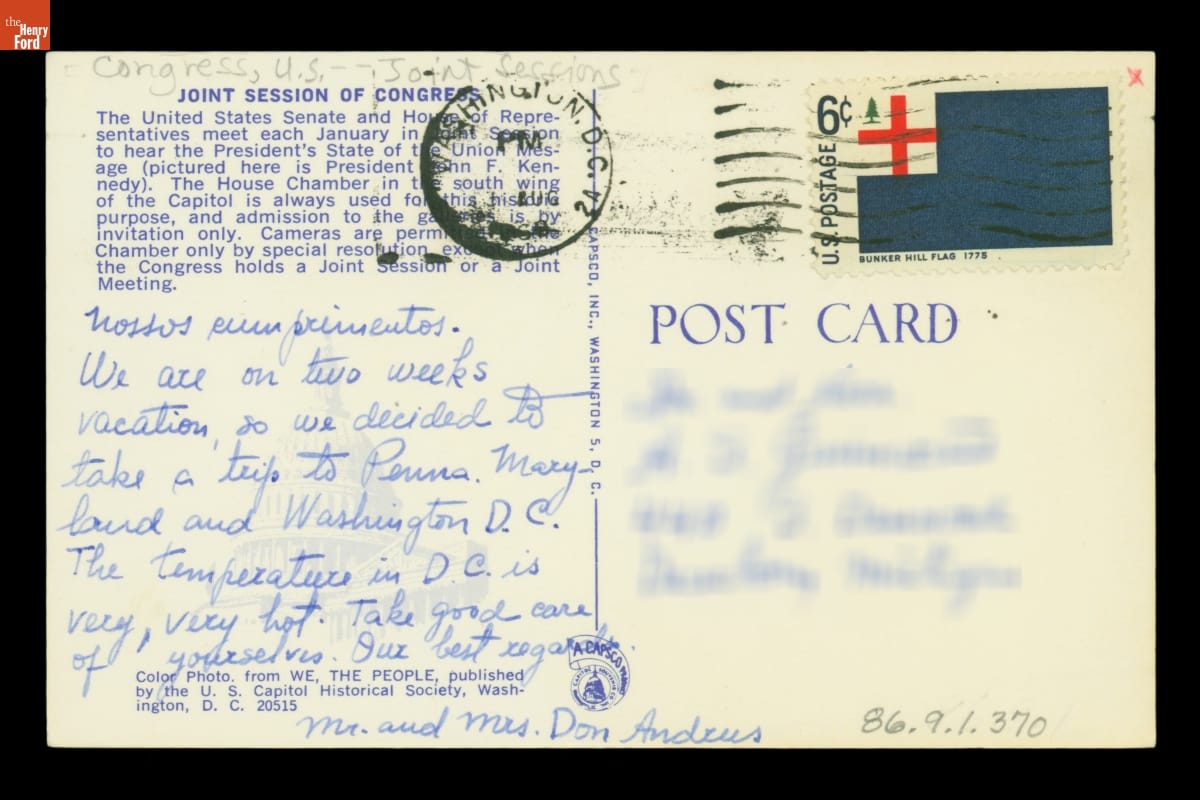 the
Henry
Ford
Congress, U.S. -- Joint Sessions
JOINT SESSION OF CONGRESS
The United States Senate and House of Repre-
sentatives meet each January in Joint Session
to hear the President's State of the Union Mes-
age (pictured here is President John F. Ken-
nedy). The House Chamber in the south wing
of the Capitol is always used for this historic
purpose, and admission to the galleries is by
invitation only. Cameras are permitted in the
Chamber only by special resolution, except when
the Congress holds a Joint Session or a Joint
Meeting.
WASHINGTON, D.C.
PM
AUG
1968
6¢
U.S. POSTAGE
BUNKER HILL FLAG 1775
CAPSCO, INC., WASHINGTON 5, D.C.
POST CARD
Nossos cumprimentos.
We are on two weeks
vacation, so we decided to
take a trip to Penna. Mary-
land and Washington D.C.
The temperature in D.C. is
very, very hot. Take good care
of yourselves. Our best regards.
Mr. and Mrs. Don Andrus
A CAPSCO
Color Photo. from WE, THE PEOPLE, published
by the U. S. Capitol Historical Society, Wash-
ington, D. C. 20515
86.9.1.370